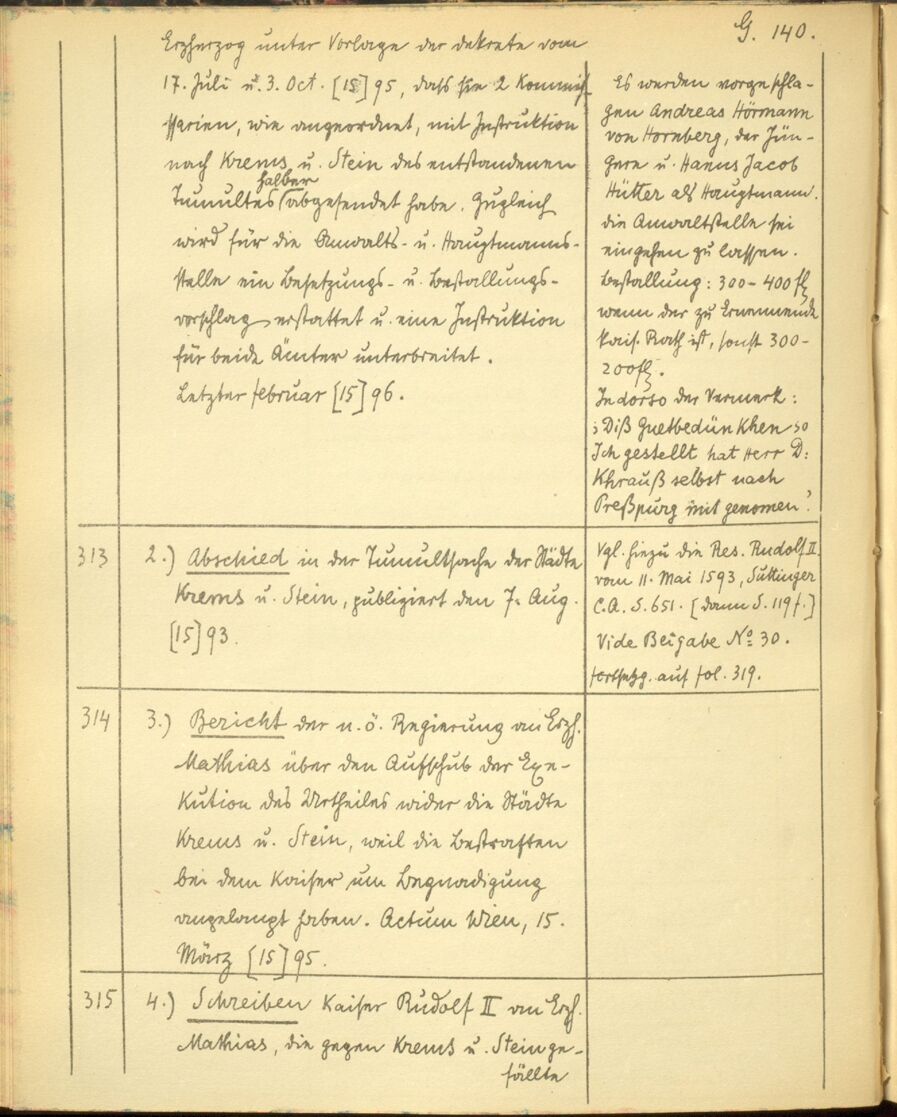 G. 140.
Erzherzog unter Vorlage der Dekrete vom
17. Juli u. 3. Oct. [15]95, dass sie 2 Kommis-
ssarien, wie angeordnet, mit Instruktion
nach Krems u. Stein des entstandenen
Tumultes halber abgesendet habe. Zugleich
wird für die Anwalts- u. Hauptmanns-
stelle ein Besetzungs- u. Bestallungs-
vorschlag erstattet u. eine Instruktion
für beide Ämter unterbreitet.
Letzter Februar [15]96.
Es werden vorgeschla-
gen Andreas Hörmann
von Hornberg, der Jün-
gere u. Hanns Jacob
Hütter als Hauptmann.
die Anwaltstelle sei
eingehen zu lassen.
Bestallung: 300-400 fl
wenn der zu Ernennende
kais. Rath ist, sonst 300-
200 fl.
In dorso der Vermerk:
"Diß Guetbedünkhen so
Ich gestellt hat Herr D:
Khrauß selbst nach
Preßpurg mit genomen"
313
2.) Abschied in der Tumultsache der Städte
Krems u. Stein, publiziert den 7. Aug.
[15]93.
Vgl. hiezu die Res. Rudolf II.
vom 11. Mai 1593, Suttinger
C.A. S. 651. [dann S. 119f.]
Vide Beigabe No 30.
Fortsetzg. auf fol. 319.
314
3.) Bericht der n. ö. Regierung an Erzh.
Mathias über den Aufschub der Exe-
kution des Urtheiles wider die Städte
Krems u. Stein, weil die Bestraften
bei dem Kaiser um Begnadigung
angelangt haben. Actum Wien, 15.
März [15]95.
315
4.) Schreiben Kaiser Rudolf II an Erzh.
Mathias, die gegen Krems u. Stein ge-
fällte